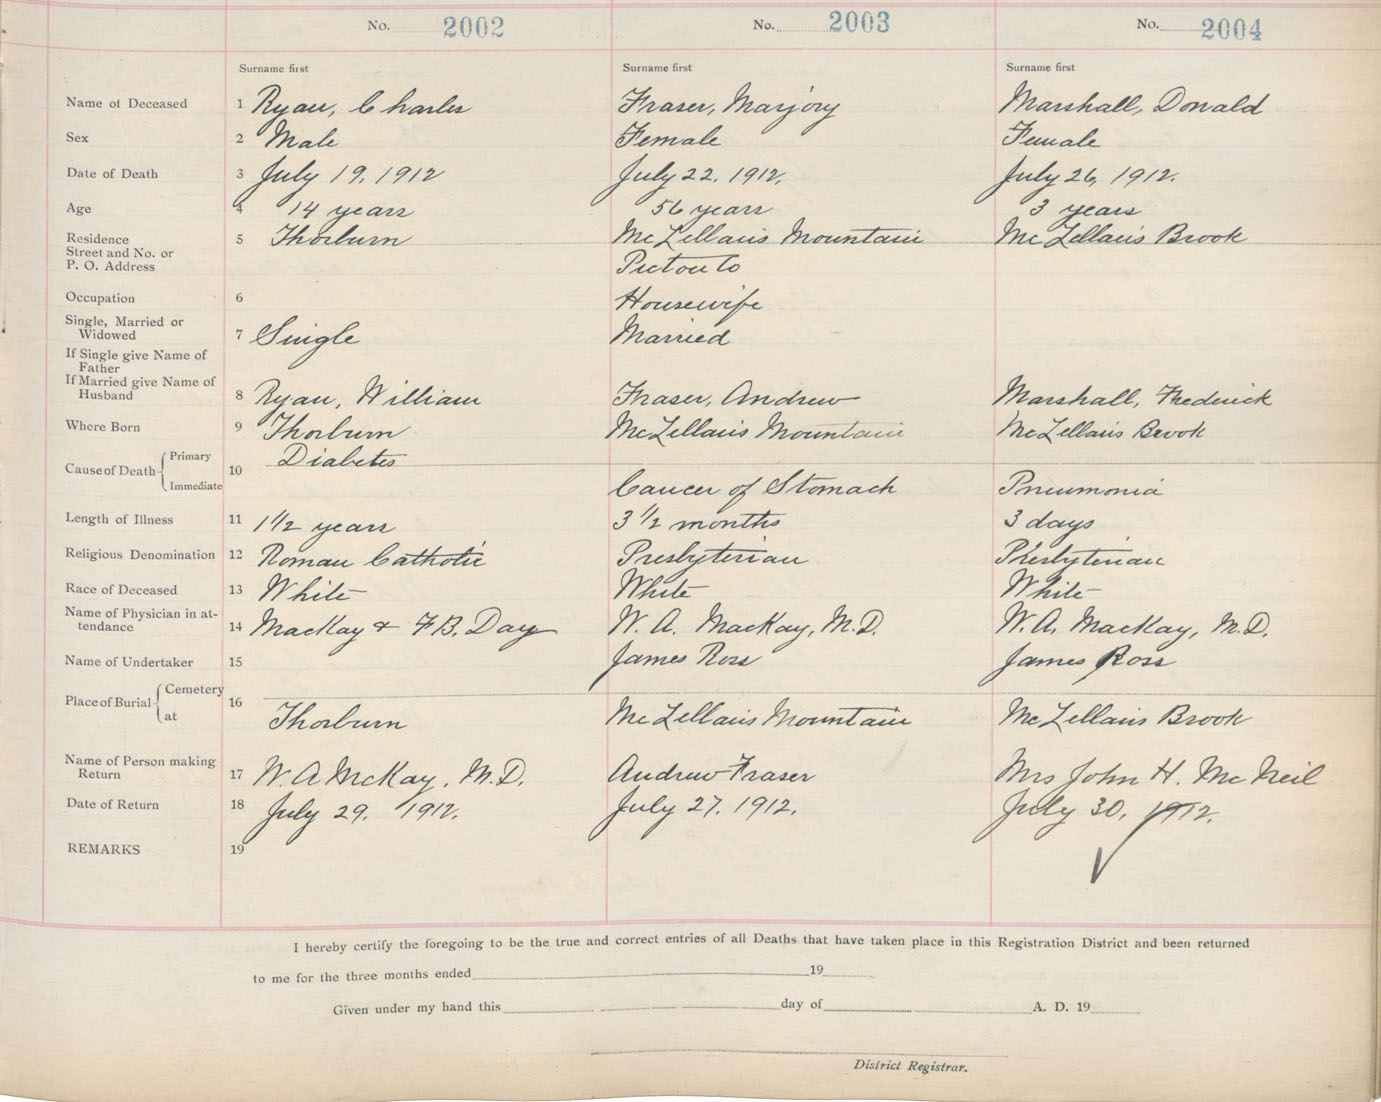 No. 2002 No. 2003 No. 2004
Surname first Surname first Surname first
Name of Deceased 1 Ryan, Charles Fraser, Marjory Marshall, Donald
Sex 2 Male Female Female
Date of Death 3 July 19, 1912 July 22, 1912. July 26, 1912.
Age 4 14 years 56 years 3 years
Residence 5 Thorburn McLellan's Mountain McLellan's Brook
Street and No. or
P. O. Address Pictou Co
Occupation 6 Housewife
Single, Married or
Widowed 7 Single Married
If Single give Name of
Father
If Married give Name of
Husband 8 Ryan, William Fraser, Andrew Marshall, Frederick
Where Born 9 Thorburn McLellan's Mountain McLellan's Brook
Cause of Death Primary 10 Diabetes
Immediate Cancer of Stomach Pneumonia
Length of Illness 11 1 1/2 years 3 1/2 months 3 days
Religious Denomination 12 Roman Catholic Presbyterian Presbyterian
Race of Deceased 13 White White White
Name of Physician in at-
tendance 14 MacKay & F.B. Day W. A. MacKay, M.D. W. A. MacKay, M.D.
Name of Undertaker 15 James Ross James Ross
Place of Burial Cemetery 16
at Thorburn McLellan's Mountain McLellan's Brook
Name of Person making
Return 17 W. A McKay, M.D. Andrew Fraser Mrs John H. McNeil
Date of Return 18 July 29, 1912. July 27, 1912. July 30, 1912.
REMARKS 19
I hereby certify the foregoing to be the true and correct entries of all Deaths that have taken place in this Registration District and been returned
to me for the three months ended 19
Given under my hand this day of A. D. 19
District Registrar.